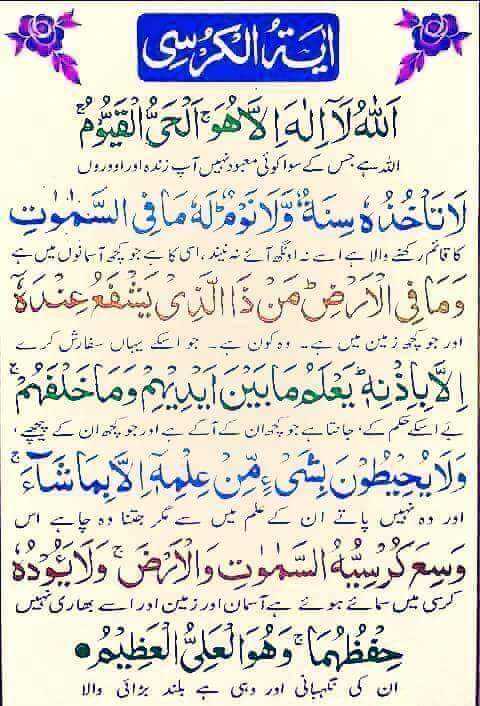 آیة الکرسی
اَللّٰهُ لَآ اِلٰهَ اِلَّا هُوَ ۚ اَلْحَیُّ الْقَیُّوْمُ ۚ
اللہ ہے جس کے سوا کوئی معبود نہیں آپ زندہ اور اوروں
لَا تَاْخُذُهٗ سِنَةٌ وَّلَا نَوْمٌ ؕ لَهٗ مَا فِی السَّمٰوٰتِ
کا قائم رکھنے والا ہے اسے نہ اونگھ آئے نہ نیند، اسی کا ہے جو کچھ آسمانوں میں ہے
وَمَا فِی الْاَرْضِ ؕ مَنْ ذَا الَّذِیْ یَشْفَعُ عِنْدَهٗۤ
اور جو کچھ زمین میں ہے۔ وہ کون ہے۔ جو اسکے یہاں سفارش کرے
اِلَّا بِاِذْنِهٖ ؕ یَعْلَمُ مَا بَیْنَ اَیْدِیْهِمْ وَمَا خَلْفَهُمْ ۚ
بے اسکے حکم کے، جانتا ہے جو کچھ ان کے آگے ہے اور جو کچھ ان کے پیچھے،
وَلَا یُحِیْطُوْنَ بِشَیْءٍ مِّنْ عِلْمِهٖۤ اِلَّا بِمَا شَآءَ ۚ
اور وہ نہیں پاتے ان کے علم میں سے مگر جتنا وہ چاہے اس
وَسِعَ کُرْسِیُّهُ السَّمٰوٰتِ وَالْاَرْضَ ۚ وَلَا یَـُٔوْدُهٗ
کرسی میں سمائے ہوئے ہے آسمان اور زمین اور اسے بھاری نہیں
حِفْظُهُمَا ۚ وَهُوَ الْعَلِیُّ الْعَظِیْمُ ●
ان کی نگہبانی اور وہی ہے بلند بڑائی والا